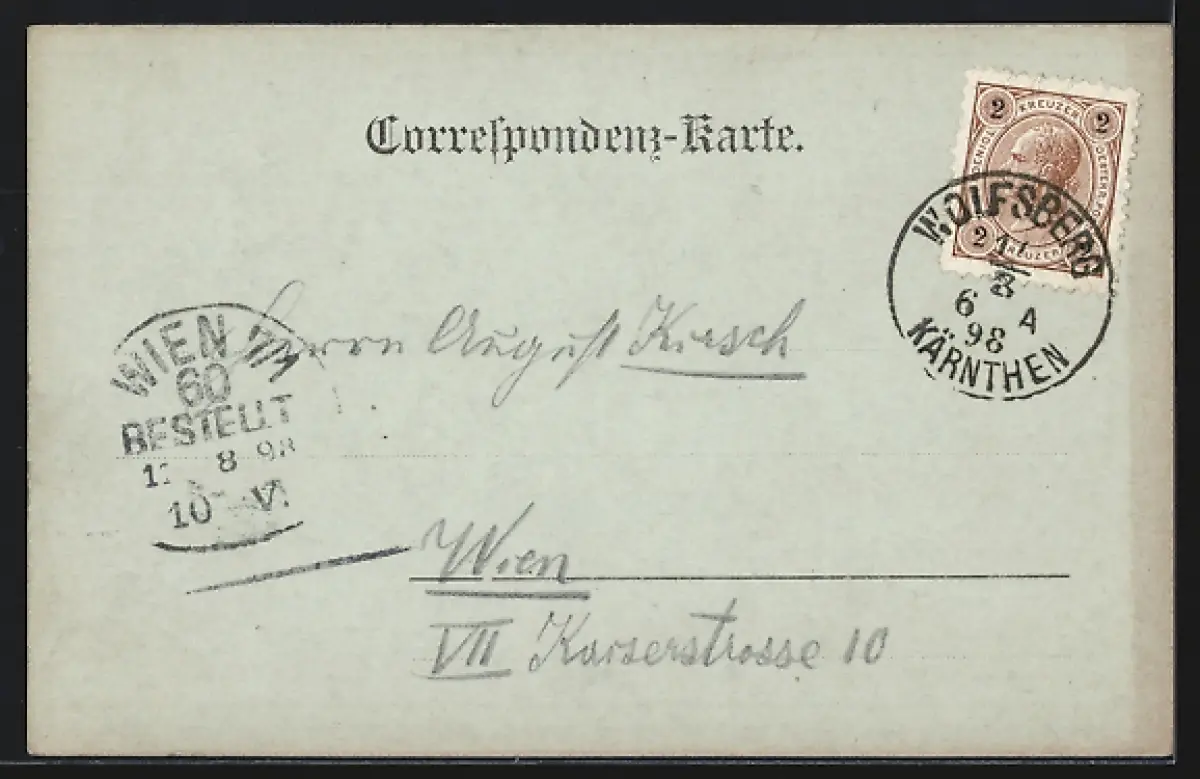 Correſpondenz-Karte.
2 KREUZER 2
2 KREUZER
WOLFSBERG
8
6 A
98
KÄRNTHEN
Herrn August Kirsch
WIEN
60
BESTELLT
8 98
10 V.
Wien
VII Kaiserstrasse 10